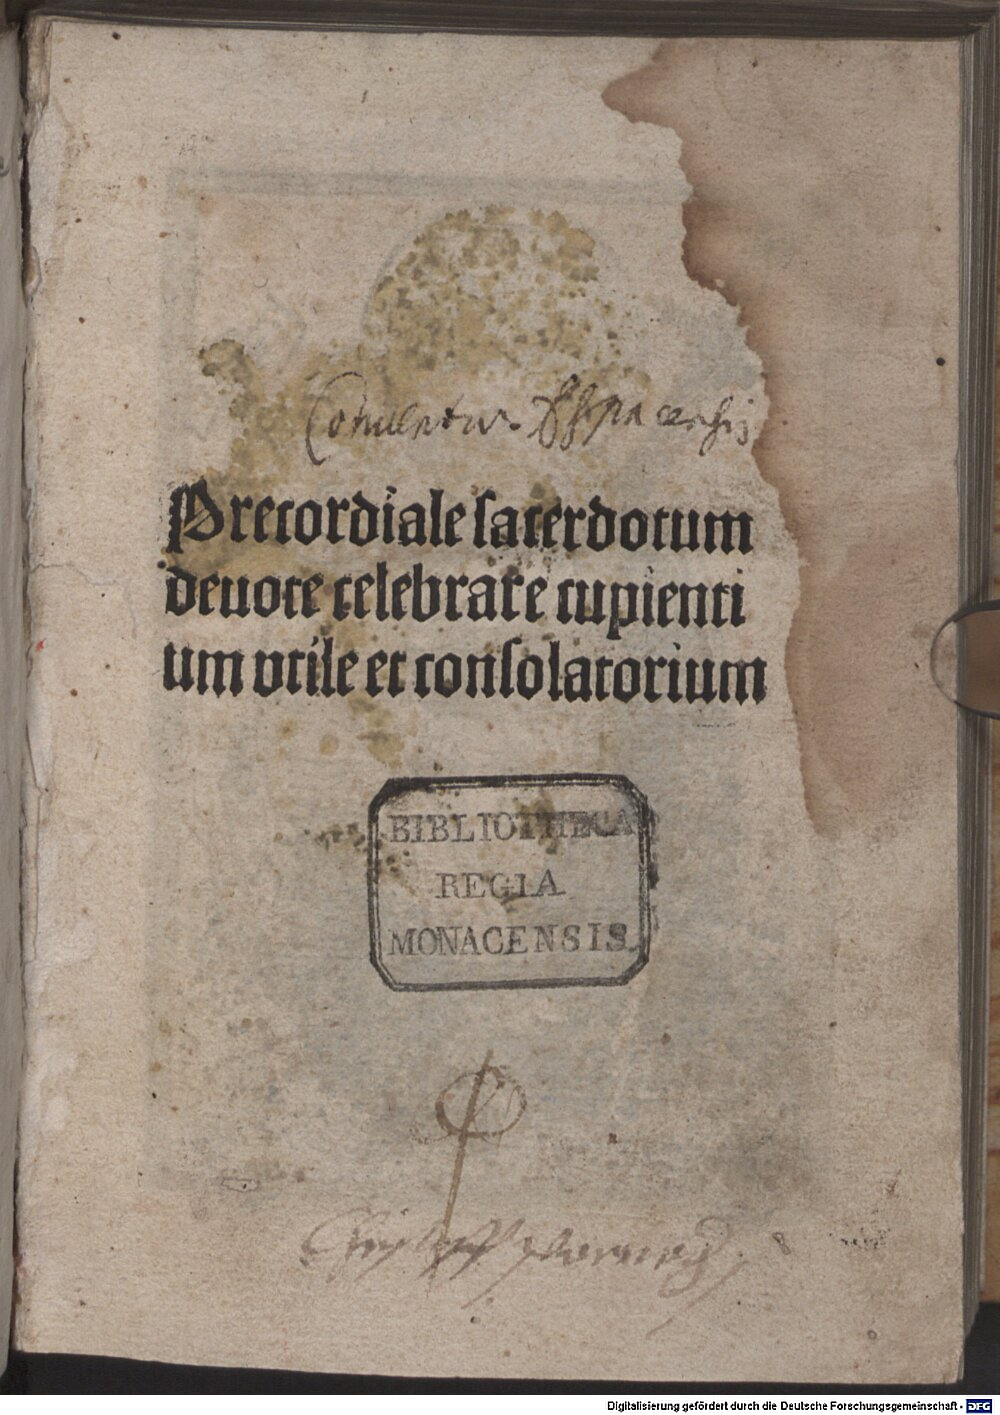 Conventus
Precordiale sacerdotum
deuote celebrare cupienti
um vtile et consolatorium
BIBLIOTHECA
REGIA
MONACENSIS
Digitalisierung gefördert durch die Deutsche Forschungsgemeinschaft - DFG